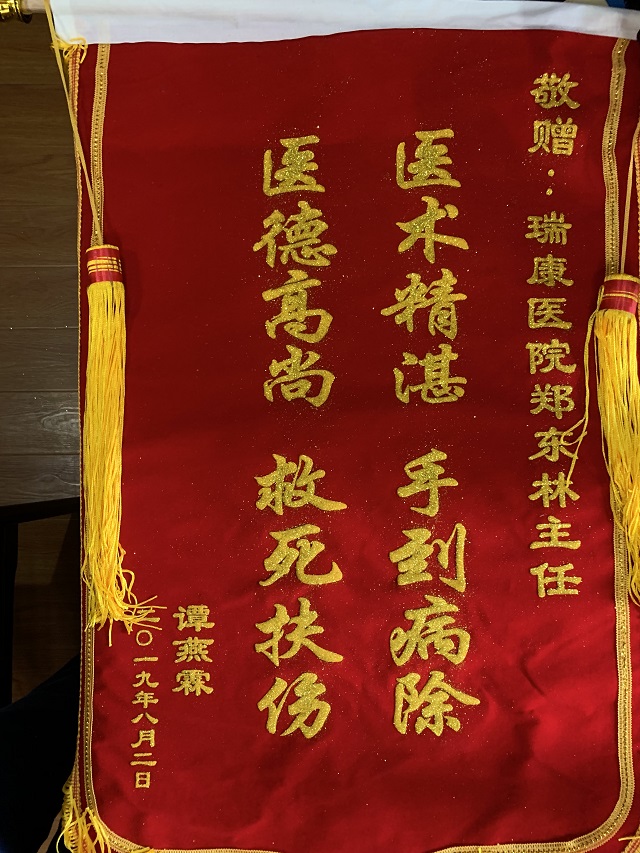 敬赠：瑞康医院郑东林主任
医术精湛 手到病除
医德高尚 救死扶伤
谭燕霖
二〇一九年八月二日